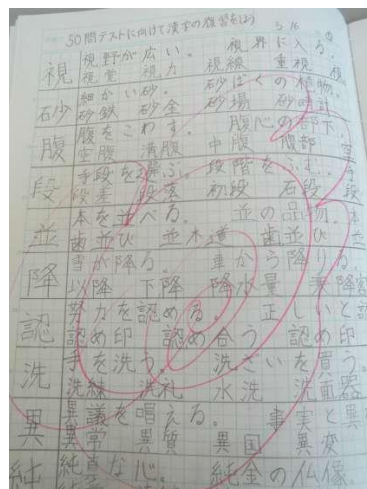 50問テストに向けて漢字の復習をしよう
5/16
視 視野が広い。 視界に入る。
視覚 視力 視線 重視
砂 細かい砂。 砂ばくの植物。
砂鉄 砂金 砂場 砂時計
腹 腹をこわす。 腹心の部下。
空腹 満腹 中腹 腹部
段 手段を選ぶ。 段階をふむ。
段差 段落 初段 石段 段
並 本を並べる。 並の品物。 本
歯並び 並木道 歯並び 並
降 雪が降る。 車から降りる。
以降 下降 降水量 乗降
認 努力を認める。 正しいと認
認め印 認め合う 認め印
洗 手を洗う。 洗ざいを買う。
洗練 洗礼 水洗 洗面器
異 異議を唱える。 事実と異
異常 異質 異国 異変
純 純真な心。 純金の仏像。